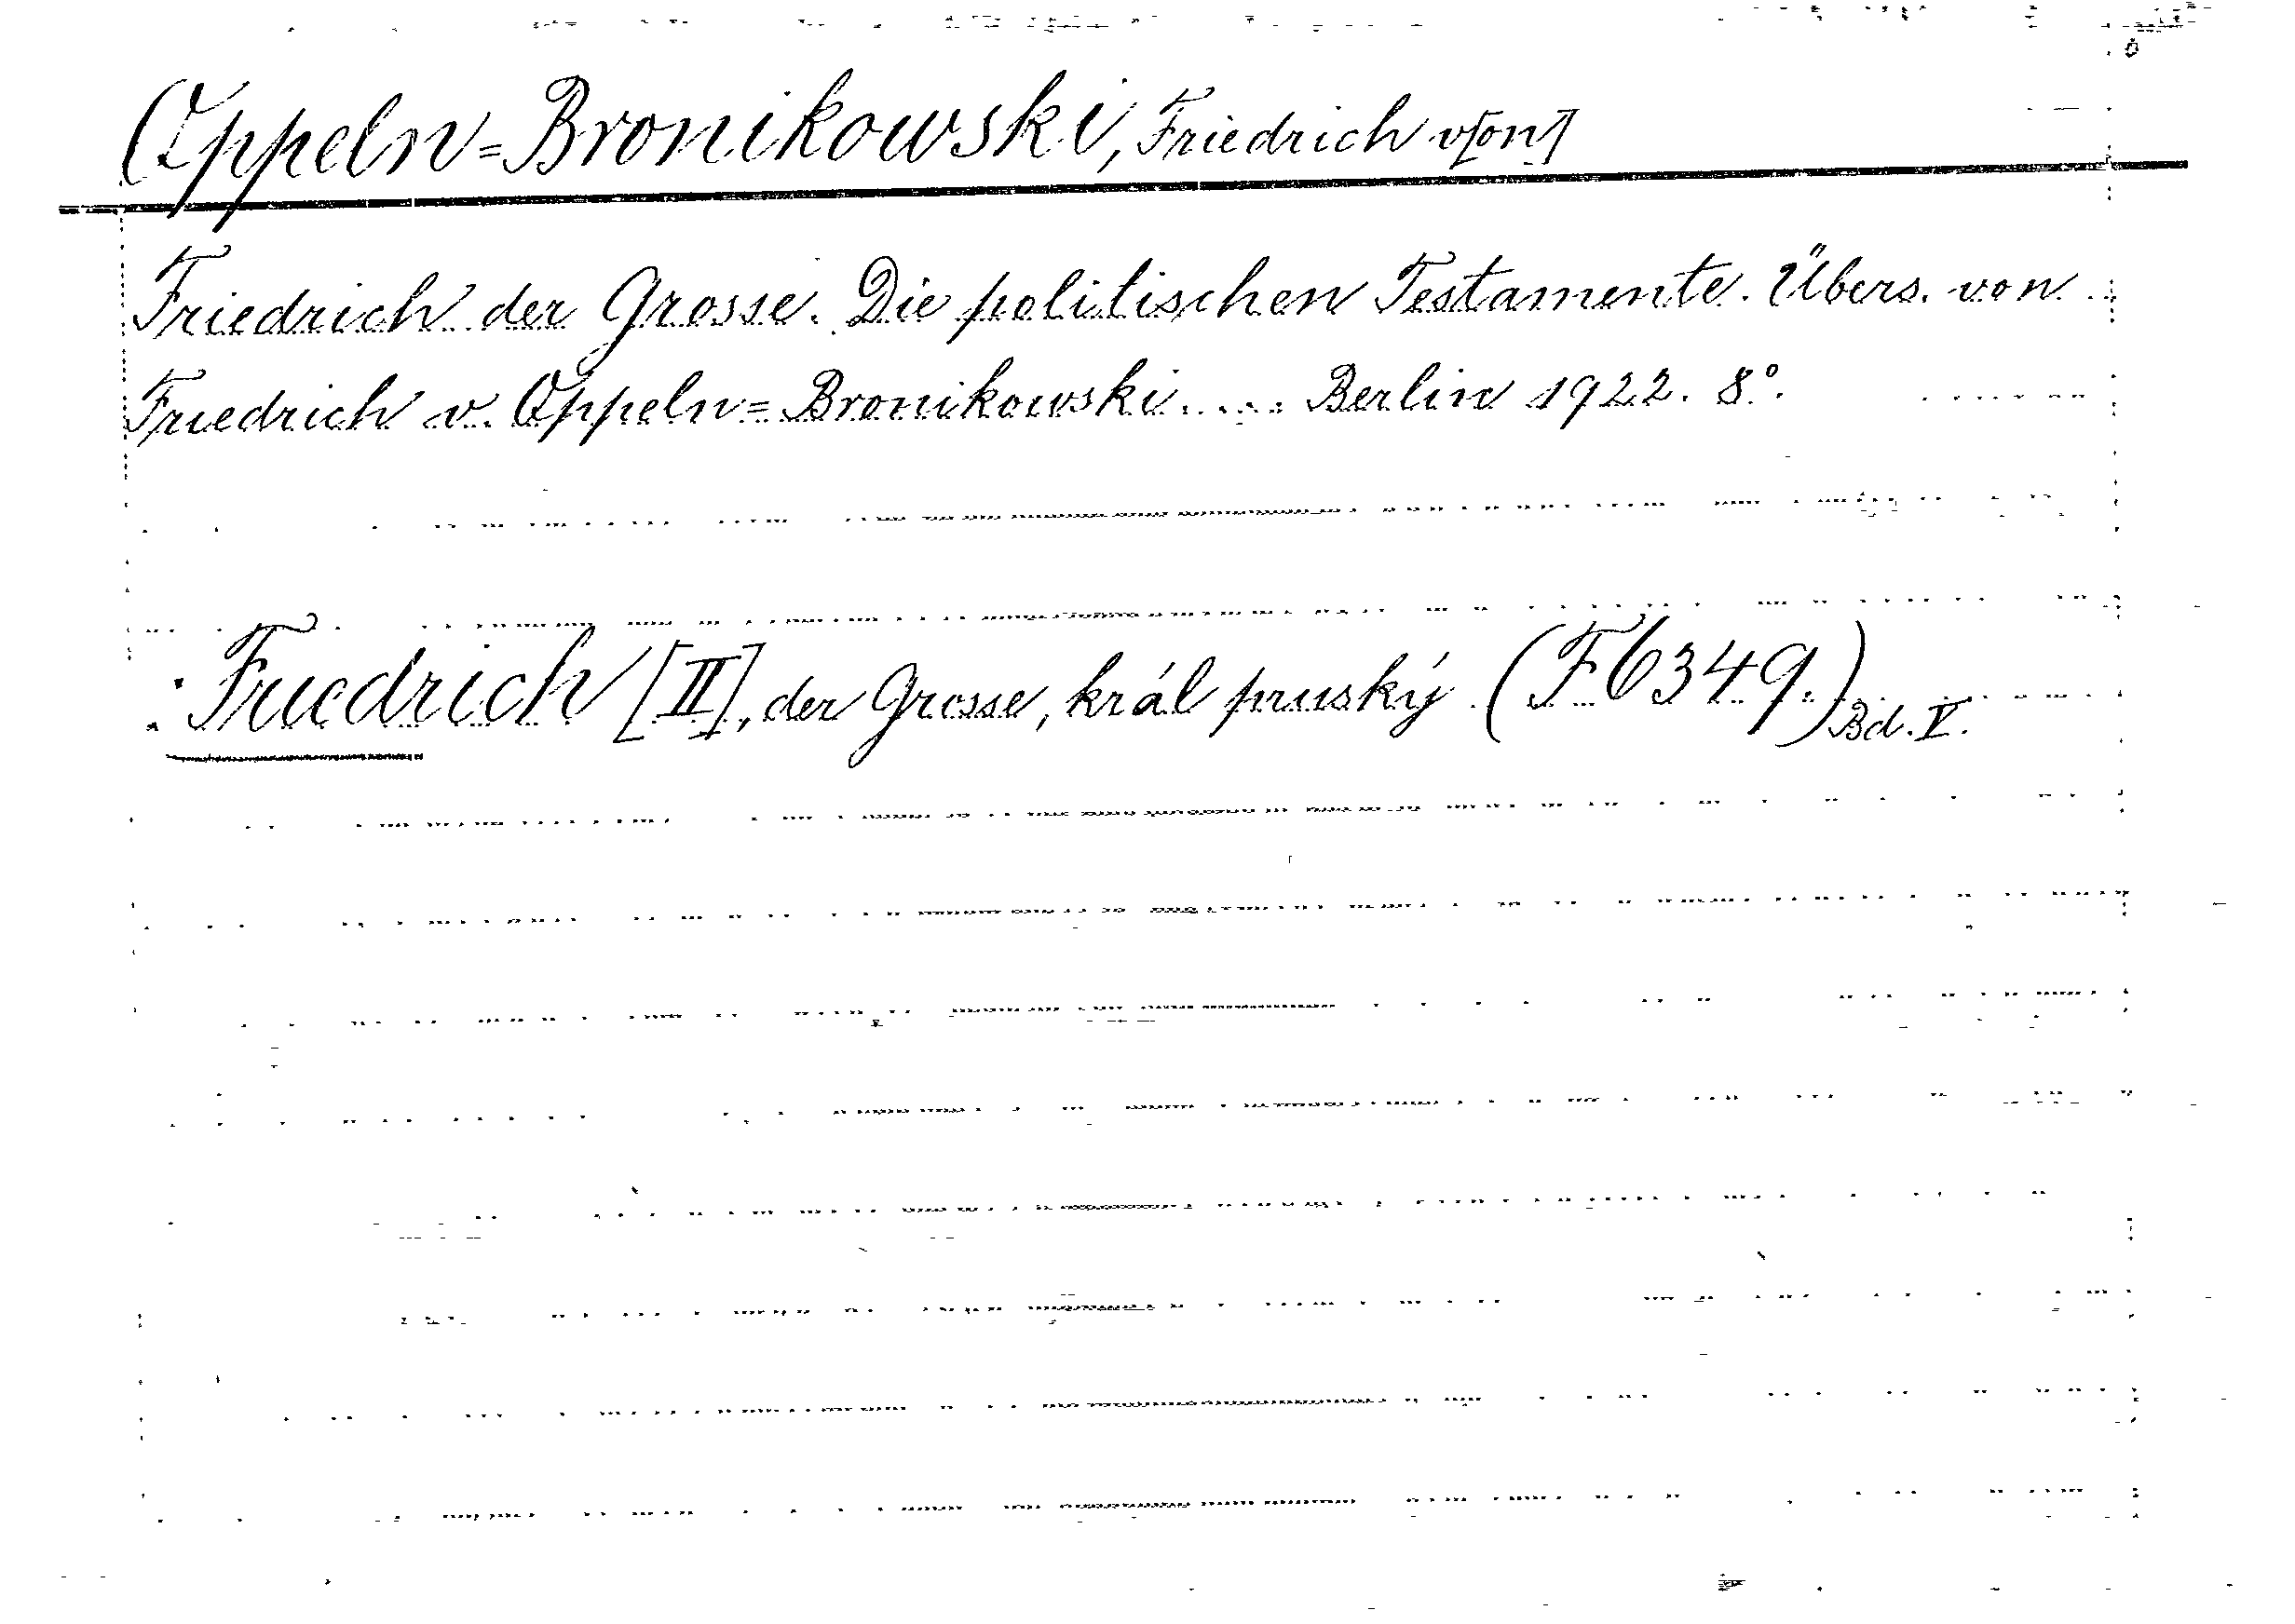 Oppeln=Bronikowski, Friedrich v[on]
Friedrich der Grosse. Die politischen Testamente. Übers. von
Friedrich v. Oppeln=Bronikowski..... Berlin 1922. 8°.
: Friedrich [II], der Grosse, král pruský (F 6349.) Bd. V.